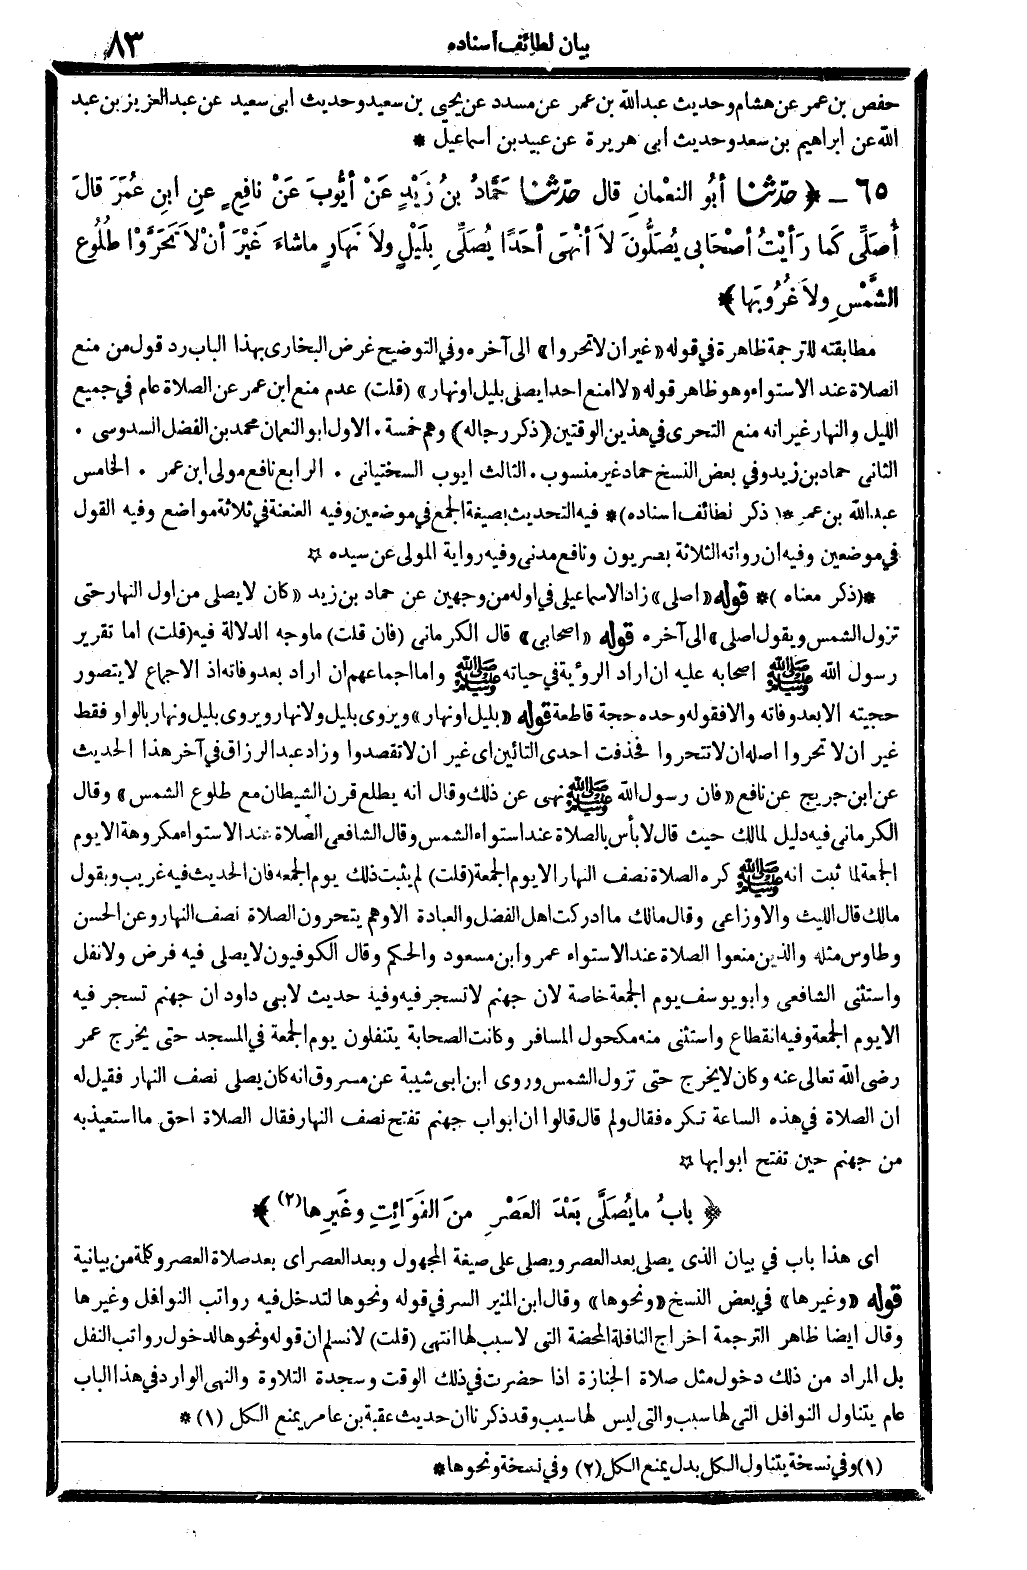 بيان لطائف اسناده
٨٣
حفص بن عمر عن هشام وحديث عبدالله بن عمر عن مسدد عن يحيى بن سعيد وحديث ابى سعيد عن عبدالعزيز بن عبد
الله عن ابراهيم بن سعد وحديث ابى هريرة عن عبيد بن اسماعيل *
٦٥ ــ ﴿ حَدّثنا أبُو النعْمانِ قال حَدّثنا حَمَّادُ بنُ زَيْدٍ عَنْ أيُّوبَ عَنْ نافِعٍ عنِ ابنِ عُمَرَ قالَ
أُصَلِّى كَما رَأيْتُ أصْحَابِى يُصَلُّونَ لاَ أنْهَى أحَدًا يُصَلِّى بِلَيْلٍ ولاَ نَهارٍ ماشاءَ غَيْرَ أنْ لاَ تَحَرَّوْا طُلُوع
الشَّمْسِ ولاَ غُرُوبَها ﴾
مطابقته للترجمة ظاهرة في قوله «غير ان لا تحروا» الى آخره وفي التوضيح غرض البخارى بهذا الباب رد قول من منع
الصلاة عند الاستواء وهو ظاهر قوله «لا امنع احدا يصلى بليل او نهار» (قلت) عدم منع ابن عمر عن الصلاة عام في جميع
الليل والنهار غير انه منع التحرى في هذين الوقتين (ذكر رجاله) وهم خمسة . الاول ابو النعمان محمد بن الفضل السدوسى .
الثانى حماد بن زيد وفي بعض النسخ حماد غير منسوب . الثالث ايوب السختيانى . الرابع نافع مولى ابن عمر . الخامس
عبدالله بن عمر *(ذكر لطائف اسناده)* فيه التحديث بصيغة الجمع في موضعين وفيه العنعنة في ثلاثة مواضع وفيه القول
في موضعين وفيه ان رواته الثلاثة بصريون ونافع مدنى وفيه رواية المولى عن سيده ✡
*(ذكر معناه)* قوله «اصلى» زاد الاسماعيلى في اوله من وجهين عن حماد بن زيد «كان لا يصلى من اول النهار حتى
تزول الشمس ويقول اصلى» الى آخره قوله «اصحابى» قال الكرمانى (فان قلت) ما وجه الدلالة فيه (قلت) اما تقرير
رسول الله ﷺ اصحابه عليه ان اراد الرؤية في حياته ﷺ واما اجماعهم ان اراد بعد وفاته اذ الاجماع لا يتصور
حجيته الا بعد وفاته والا فقوله وحده حجة قاطعة قوله «بليل او نهار» ويروى بليل ولا نهار ويروى بليل ونهار بالواو فقط
غير ان لا تحروا اصله ان لا تتحروا فحذفت احدى التائين اى غير ان لا تقصدوا وزاد عبد الرزاق في آخر هذا الحديث
عن ابن جريج عن نافع «فان رسول الله ﷺ نهى عن ذلك وقال انه يطلع قرن الشيطان مع طلوع الشمس» وقال
الكرمانى فيه دليل لمالك حيث قال لا بأس بالصلاة عند استواء الشمس وقال الشافعى الصلاة عند الاستواء مكروهة الا يوم
الجمعة لما ثبت انه ﷺ كره الصلاة نصف النهار الا يوم الجمعة (قلت) لم يثبت ذلك يوم الجمعه فان الحديث فيه غريب وبقول
مالك قال الليث والاوزاعى وقال مالك ما ادركت اهل الفضل والعبادة الا وهم يتحرون الصلاة نصف النهار وعن الحسن
وطاوس مثله والذين منعوا الصلاة عند الاستواء عمر وابن مسعود والحكم وقال الكوفيون لا يصلى فيه فرض ولا نفل
واستثنى الشافعى وابو يوسف يوم الجمعة خاصة لان جهنم لا تسجر فيه وفيه حديث لابى داود ان جهنم تسجر فيه
الا يوم الجمعة وفيه انقطاع واستثنى منه مكحول المسافر وكانت الصحابة يتنفلون يوم الجمعة في المسجد حتى يخرج عمر
رضى الله تعالى عنه وكان لا يخرج حتى تزول الشمس وروى ابن ابى شيبة عن مسروق انه كان يصلى نصف النهار فقيل له
ان الصلاة في هذه الساعة تكره فقال ولم قال قالوا ان ابواب جهنم تفتح نصف النهار فقال الصلاة احق ما استعيذ به
من جهنم حين تفتح ابوابها ✡
﴿ بابُ ما يُصَلَّى بَعْدَ العَصْرِ منَ الفَوَائِتِ وغَيرِها (٢) ﴾
اى هذا باب في بيان الذى يصلى بعد العصر ويصلى على صيغة المجهول وبعد العصر اى بعد صلاة العصر وكلمة من بيانية
قوله «وغيرها» في بعض النسخ «ونحوها» وقال ابن المنير السر في قوله ونحوها لتدخل فيه رواتب النوافل وغيرها
وقال ايضا ظاهر الترجمة اخراج النافلة المحضة التى لا سبب لها انتهى (قلت) لا نسلم ان قوله ونحوها لدخول رواتب النفل
بل المراد من ذلك دخول مثل صلاة الجنازة اذا حضرت في ذلك الوقت وسجدة التلاوة والنهى الوارد في هذا الباب
عام يتناول النوافل التى لها سبب والتى ليس لها سبب وقد ذكرنا ان حديث عقبة بن عامر يمنع الكل (١) *
(١) وفي نسخة يتناول الكل بدل يمنع الكل (٢) وفي نسخة ونحوها *